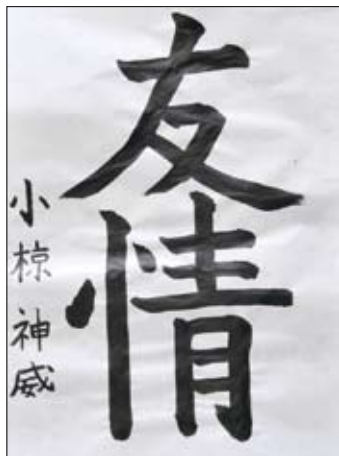 友情
小椋神威